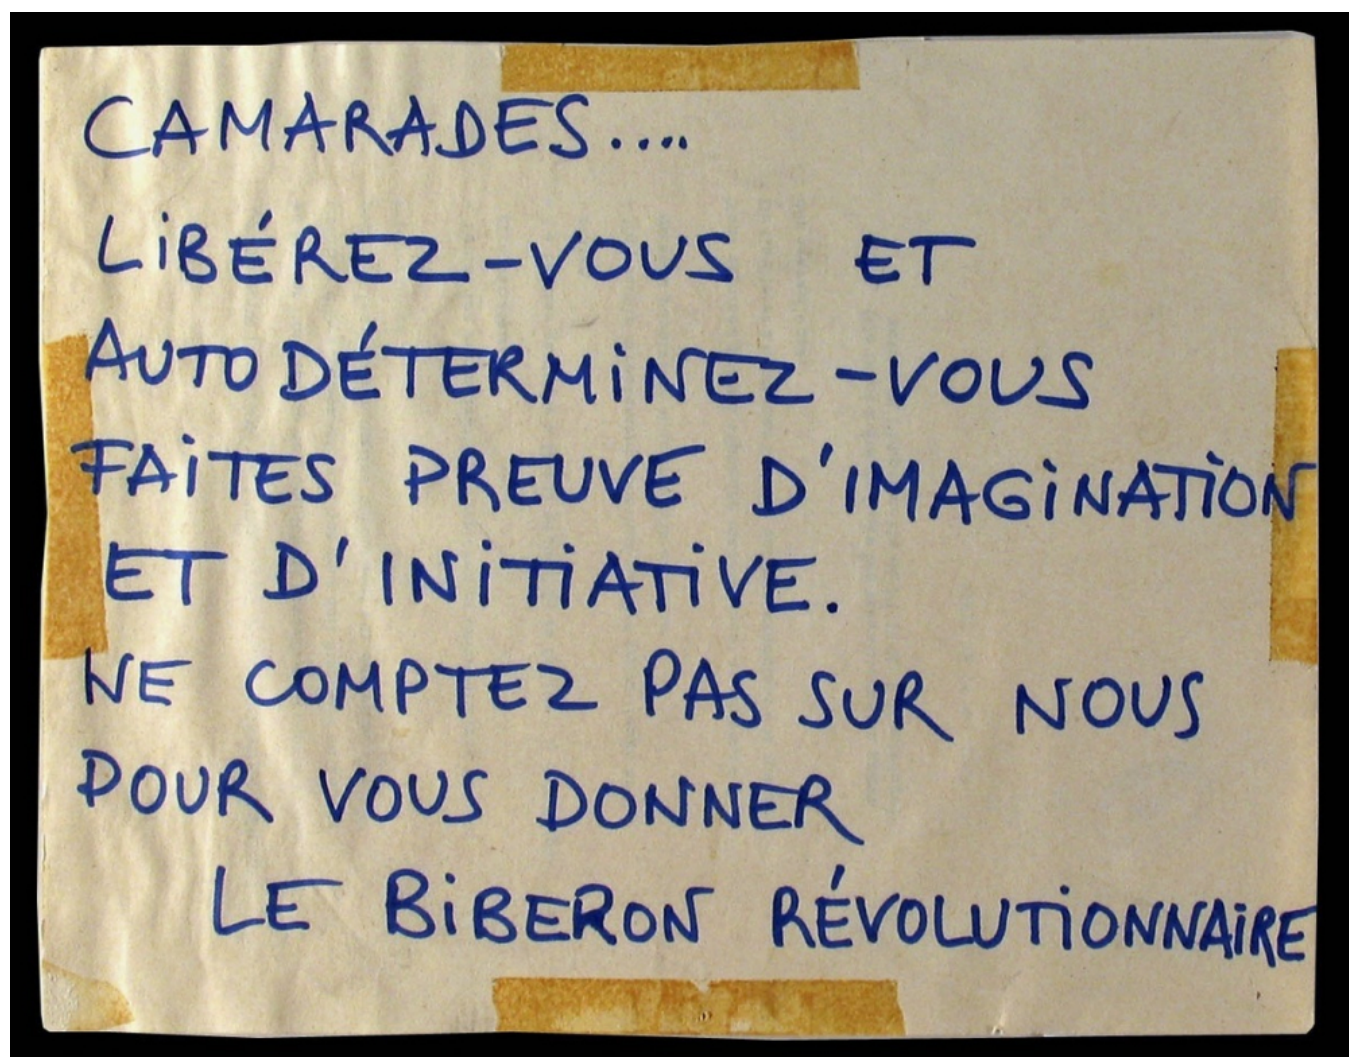 CAMARADES....
LIBÉREZ-VOUS ET
AUTODÉTERMINEZ-VOUS
FAITES PREUVE D'IMAGINATION
ET D'INITIATIVE.
NE COMPTEZ PAS SUR NOUS
POUR VOUS DONNER
LE BIBERON RÉVOLUTIONNAIRE